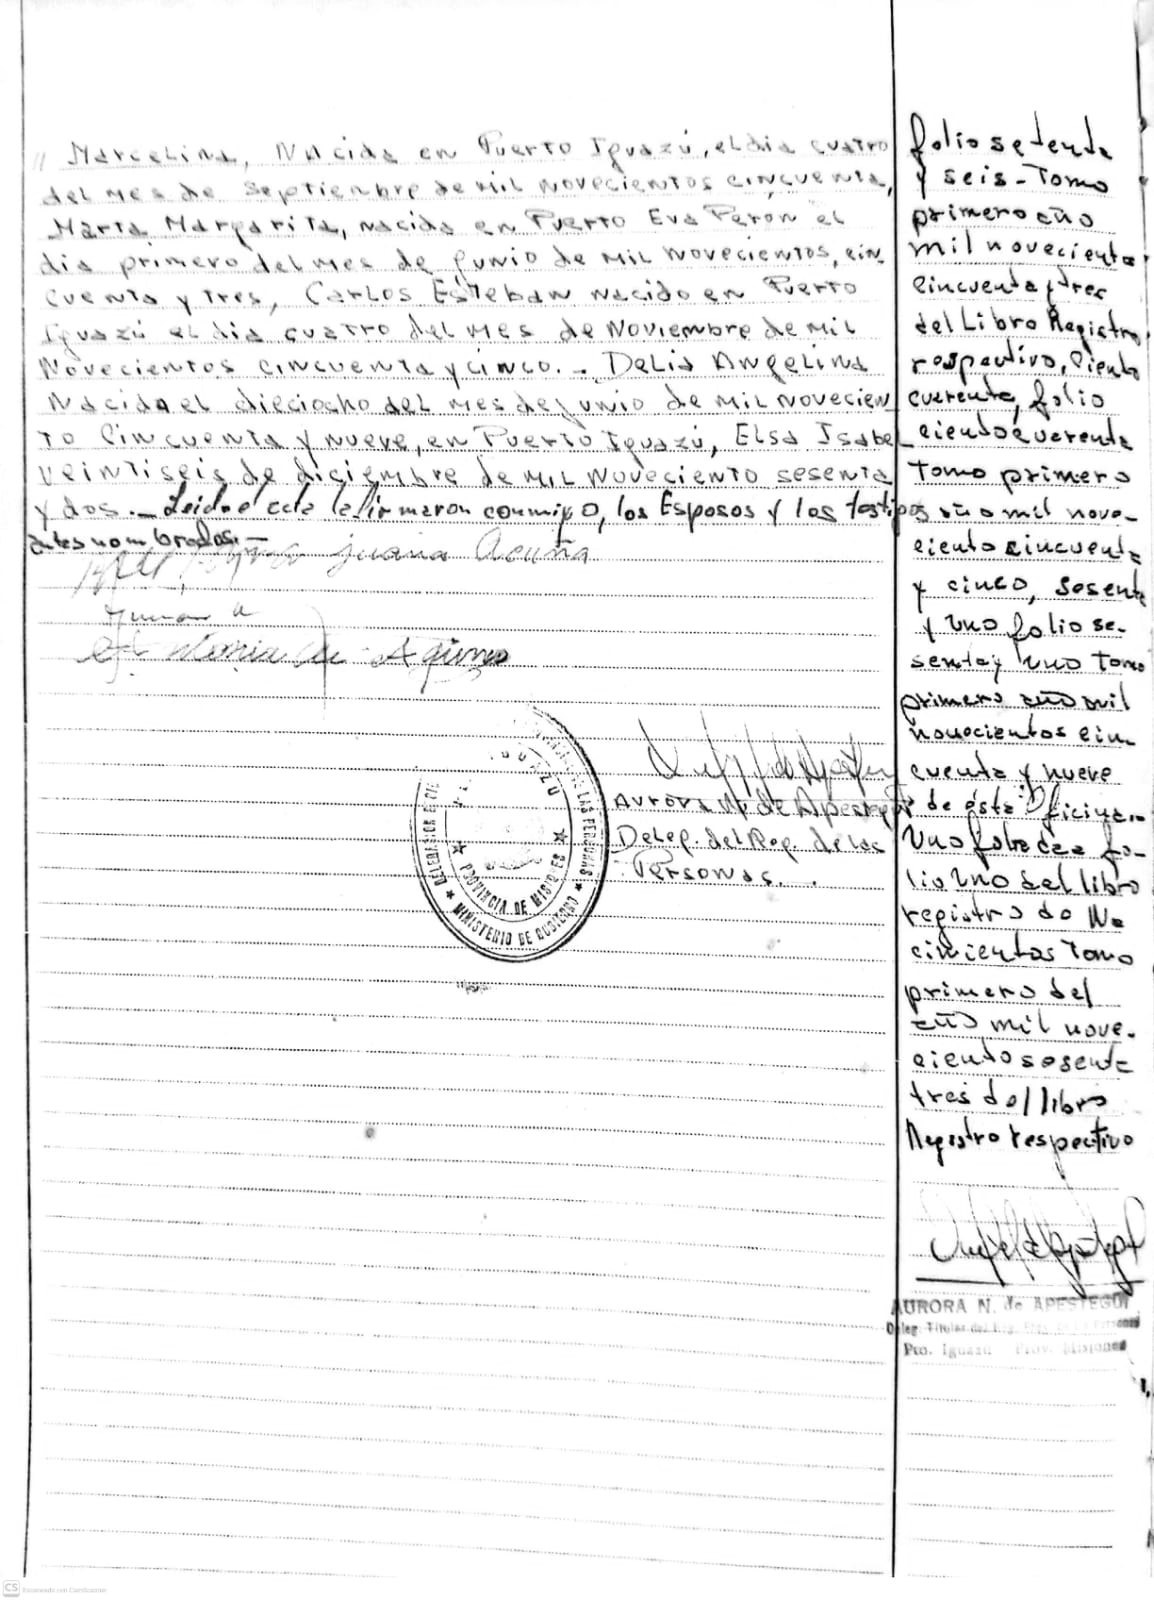 " Marcelina, Nacida en Puerto Iguazú, el dia cuatro
del mes de septiembre de mil novecientos cincuenta,
Marta Margarita, nacida en Puerto Eva Peron el
dia primero del mes de Junio de mil novecientos, cin
cuenta y tres, Carlos Esteban nacido en Puerto
Iguazú el dia cuatro del mes de Noviembre de mil
Novecientos cincuenta y cinco.- Delia Angelina
Nacida el dieciocho del mes de Junio de mil novecien
to cincuenta y nueve, en Puerto Iguazú, Elsa Isabel
veintiseis de diciembre de mil noveciento sesenta
y dos.- Leida el acta la firmaron conmigo, los Esposos y los testigos
antes nombrados.-
Juana Acuña
Aurora N. de Apestegui
Deleg. del Reg. de las
Personas.
DELEGACION CIVIL
LAS PERSONAS
IGUAZU
PROVINCIA DE MISIONES
MINISTERIO DE GOBIERNO
folio setenta
y seis- Tomo
primero año
mil noveciento
cincuenta y tres
del Libro Registro
respectivo, Ciento
cuarenta, folio
ciento cuarenta
Tomo primero
año mil nove-
ciento cincuenta
y cinco, sesenta
y uno folio se-
senta y uno Tomo
primero año mil
novecientos cin-
cuenta y nueve
de ésta Oficina-
Uno fo-
lio uno del libro
registro de Na
cimientos Tomo
primero del
año mil nove-
ciento sesenta
tres del libro
Registro respectivo
AURORA N. de APESTEGUI
Deleg. Titular del Reg.
Pto. Iguazu Prov. Misiones
CS Escaneado con CamScanner